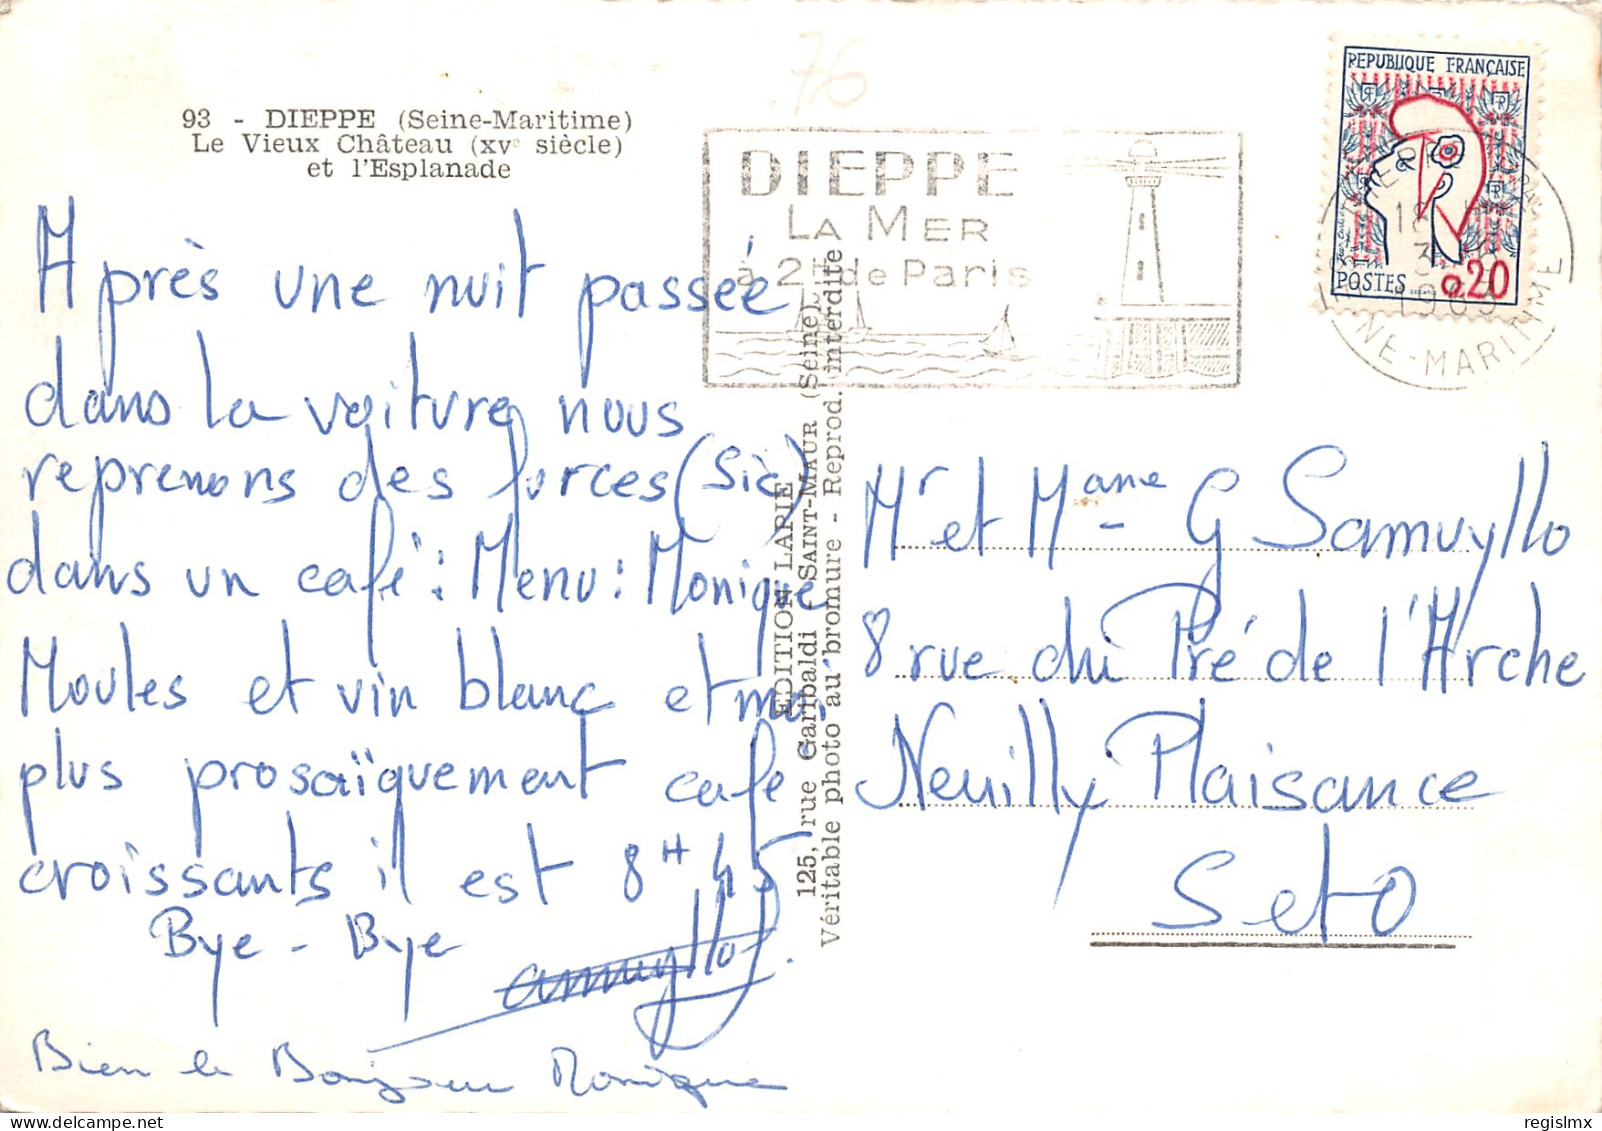 76
93 - DIEPPE (Seine-Maritime)
Le Vieux Château (XVe siècle)
et l'Esplanade
DIEPPE
LA MER
à 2H de Paris
REPUBLIQUE FRANÇAISE
POSTES 0,20
SEINE-MARITIME
Après une nuit passée
dans la voiture nous
reprenons des forces (Sic)
dans un café : Menu : Monique
Moules et vin blanc et moi
plus prosaïquement café
croissants il est 8H45
Bye - Bye
Bien le Bonjour Monique
EDITION LAPIE
125, rue Garibaldi - SAINT-MAUR (Seine)
Véritable photo au bromure - Reprod. interdite
Mr et Mame G Samuyllo
8 rue du Pré de l'Arche
Neuilly Plaisance
S et O
regislmx